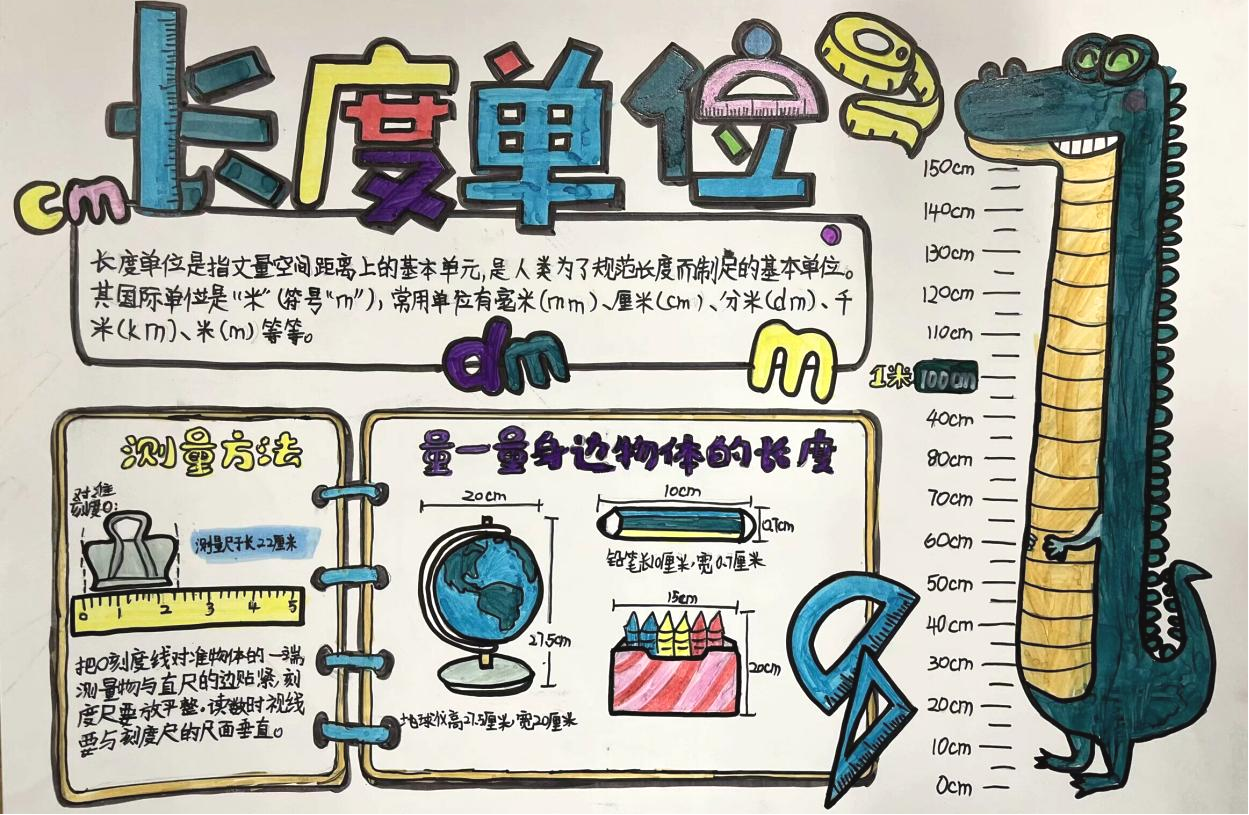 长度单位
cm
长度单位是指丈量空间距离上的基本单元,是人类为了规范长度而制定的基本单位。
其国际单位是“米”(符号“m”),常用单位有毫米(mm)、厘米(cm)、分米(dm)、千
米(km)、米(m)等等。
dm
m
测量方法
对准
刻度0:
测量尺子长2.2厘米
0 1 2 3 4 5
把0刻度线对准物体的一端,
测量物与直尺的边贴紧,刻
度尺要放平整.读数时视线
要与刻度尺的尺面垂直。
量一量身边物体的长度
20cm
27.5cm
地球仪高27.5厘米,宽20厘米
10cm
0.7cm
铅笔长10厘米,宽0.7厘米
15cm
20cm
150cm
140cm
130cm
120cm
110cm
1米 100cm
40cm
80cm
70cm
60cm
50cm
40cm
30cm
20cm
10cm
0cm